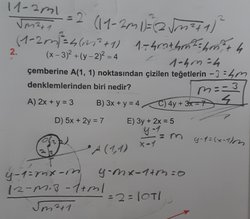 |1-2m| / √m²+1 = 2 (|1-2m|)² = (2√m²+1)²
(1-2m)² = 4(m²+1)
1-4m+4m² = 4m²+4
2. (x–3)² + (y–2)² = 4
1-4m = 4
çemberine A(1, 1) noktasından çizilen teğetlerin
-3 = 4m
denklemlerinden biri nedir?
m = -3/4
A) 2x + y = 3 B) 3x + y = 4 C) 4y + 3x = 7
D) 5x + 2y = 7 E) 3y + 2x = 5
y-1 / x-1 = m y-1 = (x-1)m
A(1,1)
y-1 = mx-m y-mx-1+m=0
|2-m.3-1+m| / √m²+1 = 2